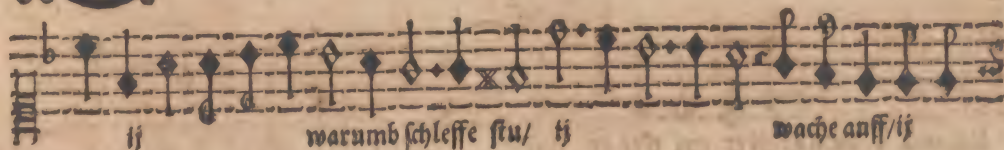 ij warumb schleffe stu/ ij wache auff/ij